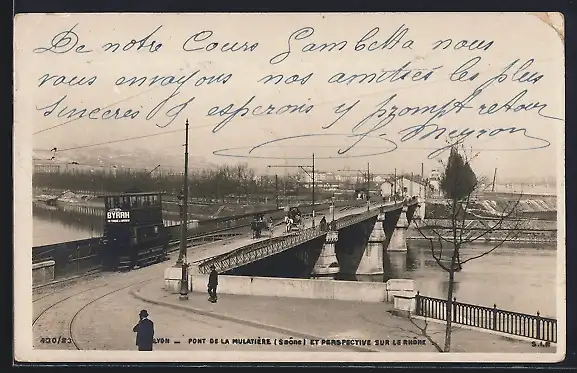 De notre Cours Gambetta nous
vous envoyons nos amitiés les plus
sincères j'espérons y prompt retour
J. Meyron
BYRRH
420/23
LYON – PONT DE LA MULATIÈRE (Saône) ET PERSPECTIVE SUR LE RHÔNE